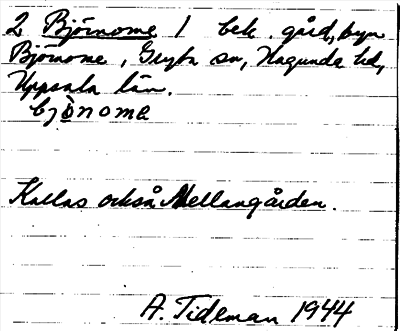 2 Björnome 1 bek. gård, byn
Björnome, Gryta sn, Hagunda hd,
Uppsala län.
bjö̀noma
Kallas också Mellangården.
A. Tideman 1944